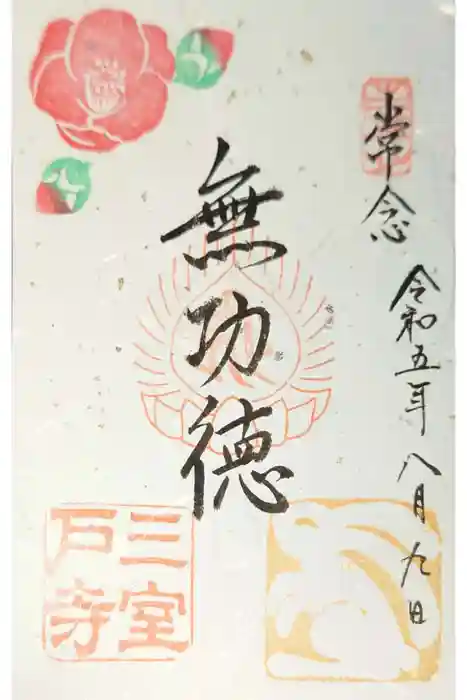 常念
令和五年八月九日
無功徳
三室
戸寺